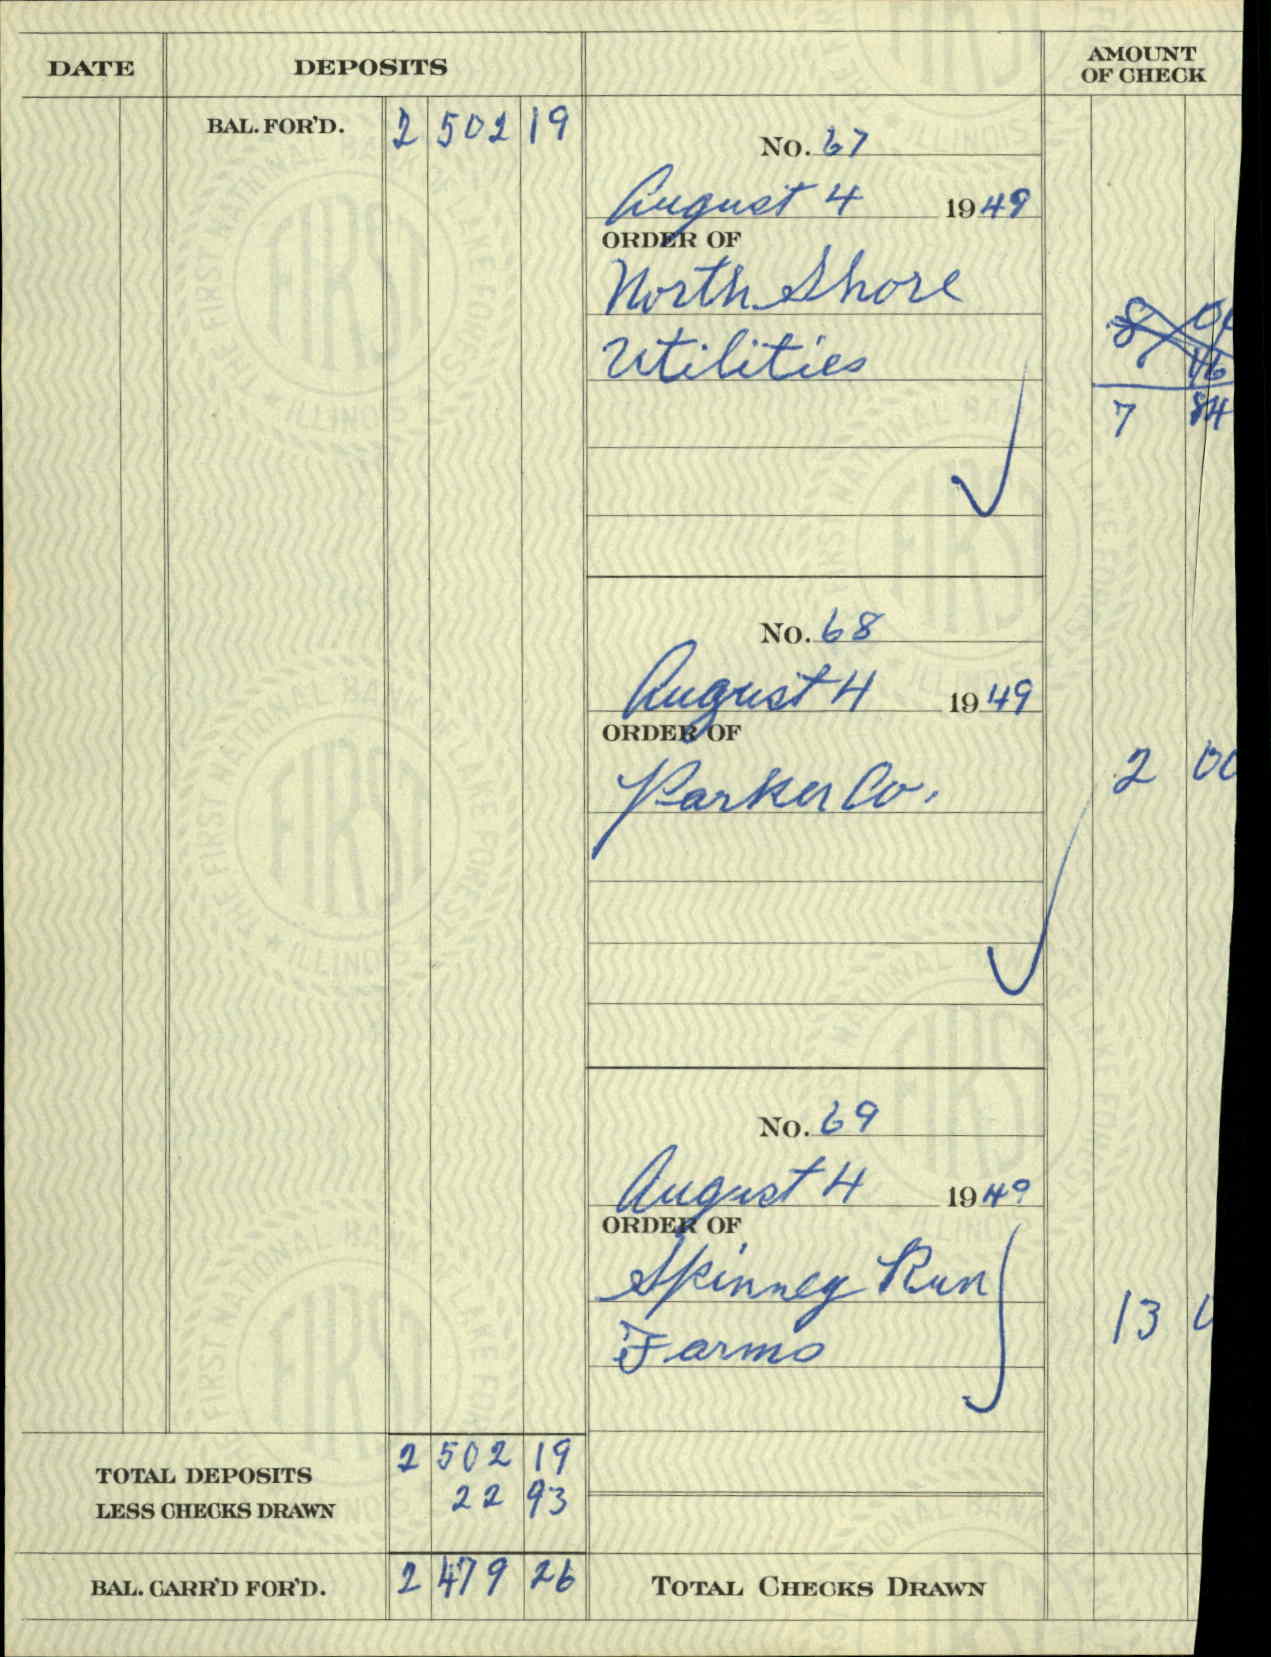 DATE DEPOSITS AMOUNT OF CHECK
BAL. FOR'D. 2 502 19
No. 67
August 4 1949
ORDER OF
North Shore
Utilities
8
16
7 84
No. 68
August 4 1949
ORDER OF
Parker Co.
2 00
No. 69
August 4 1949
ORDER OF
Spinney Run
Farms
13
TOTAL DEPOSITS 2 502 19
LESS CHECKS DRAWN 22 93
BAL. CARR'D FOR'D. 2 479 26
TOTAL CHECKS DRAWN